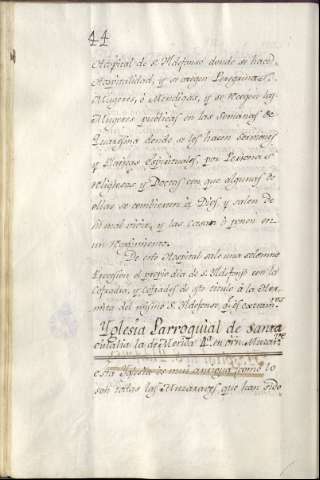 44
Hospital de S. Ildefonso donde se hace
Hospitalidad, y se recogen Peregrinas
Mugeres, ó Mendigas, y se recogen las
Mugeres publicas en las Semanas de
Quaresma donde se les hacen Sermones
y Platicas espirituales, por Personas
Religiosas y Doctas con que algunas de
ellas se combierten á Dios, y salen de
su mal vivir, y las casan ó ponen en
un
De este Hospital sale una solemne
Procesion el propio dia de S. Ildefonso con la
Cofradia, y Cofrades de este titulo á la Her-
mita del mismo S. Ildefonso, extram.ros
Yglesia Parroquial de Santa
eulalia la de Merida 4ª en orn. Muzar.
esta Yglesia es mui antigua como lo
son todas las Muzarabes, que han sido